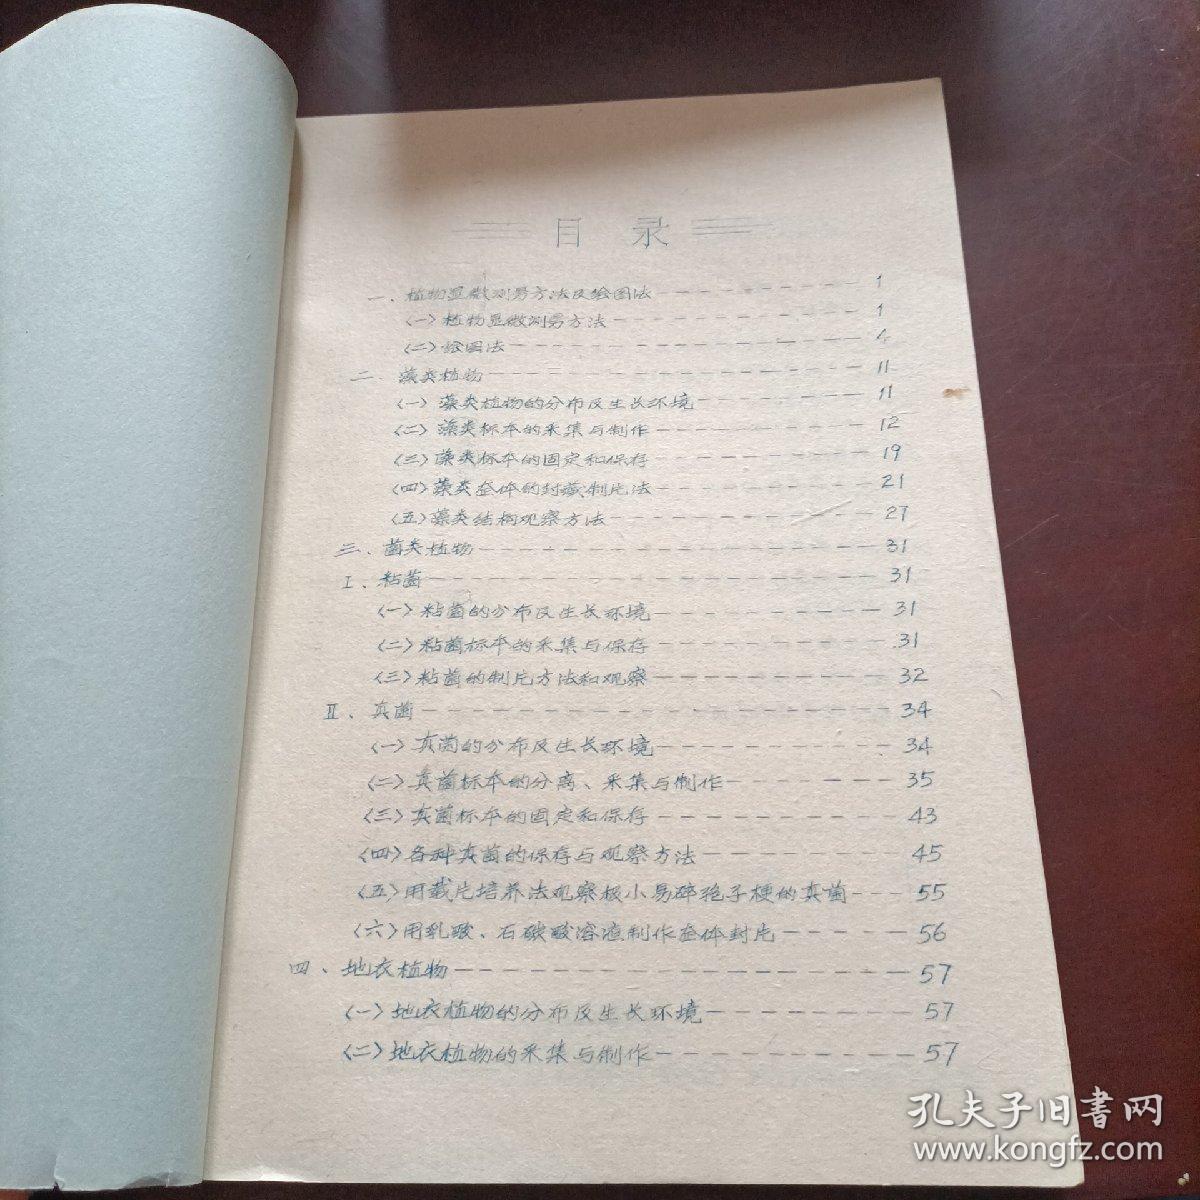 目录
一、植物显微测量方法及绘图法 1
(一)植物显微测量方法 1
(二)绘图法 4
二、藻类植物 11
(一)藻类植物的分布及生长环境 11
(二)藻类标本的采集与制作 12
(三)藻类标本的固定和保存 19
(四)藻类整体的封藏制片法 21
(五)藻类结构观察方法 27
三、菌类植物 31
I、粘菌 31
(一)粘菌的分布及生长环境 31
(二)粘菌标本的采集与保存 31
(三)粘菌的制片方法和观察 32
II、真菌 34
(一)真菌的分布及生长环境 34
(二)真菌标本的分离、采集与制作 35
(三)真菌标本的固定和保存 43
(四)各种真菌的保存与观察方法 45
(五)用载片培养法观察极小易碎孢子梗的真菌 55
(六)用乳酸、石碳酸溶液制作整体封片 56
四、地衣植物 57
(一)地衣植物的分布及生长环境 57
(二)地衣植物的采集与制作 57
孔夫子旧书网
www.kongfz.com